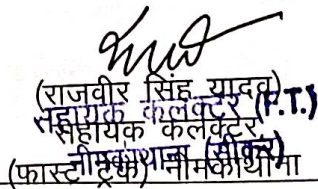 (राजवीर सिंह यादव)
सहायक कलेक्टर (F.T.)
सहायक कलेक्टर
नीमकाथाना (सीकर)
(फास्ट ट्रेक) नीमकाथाना